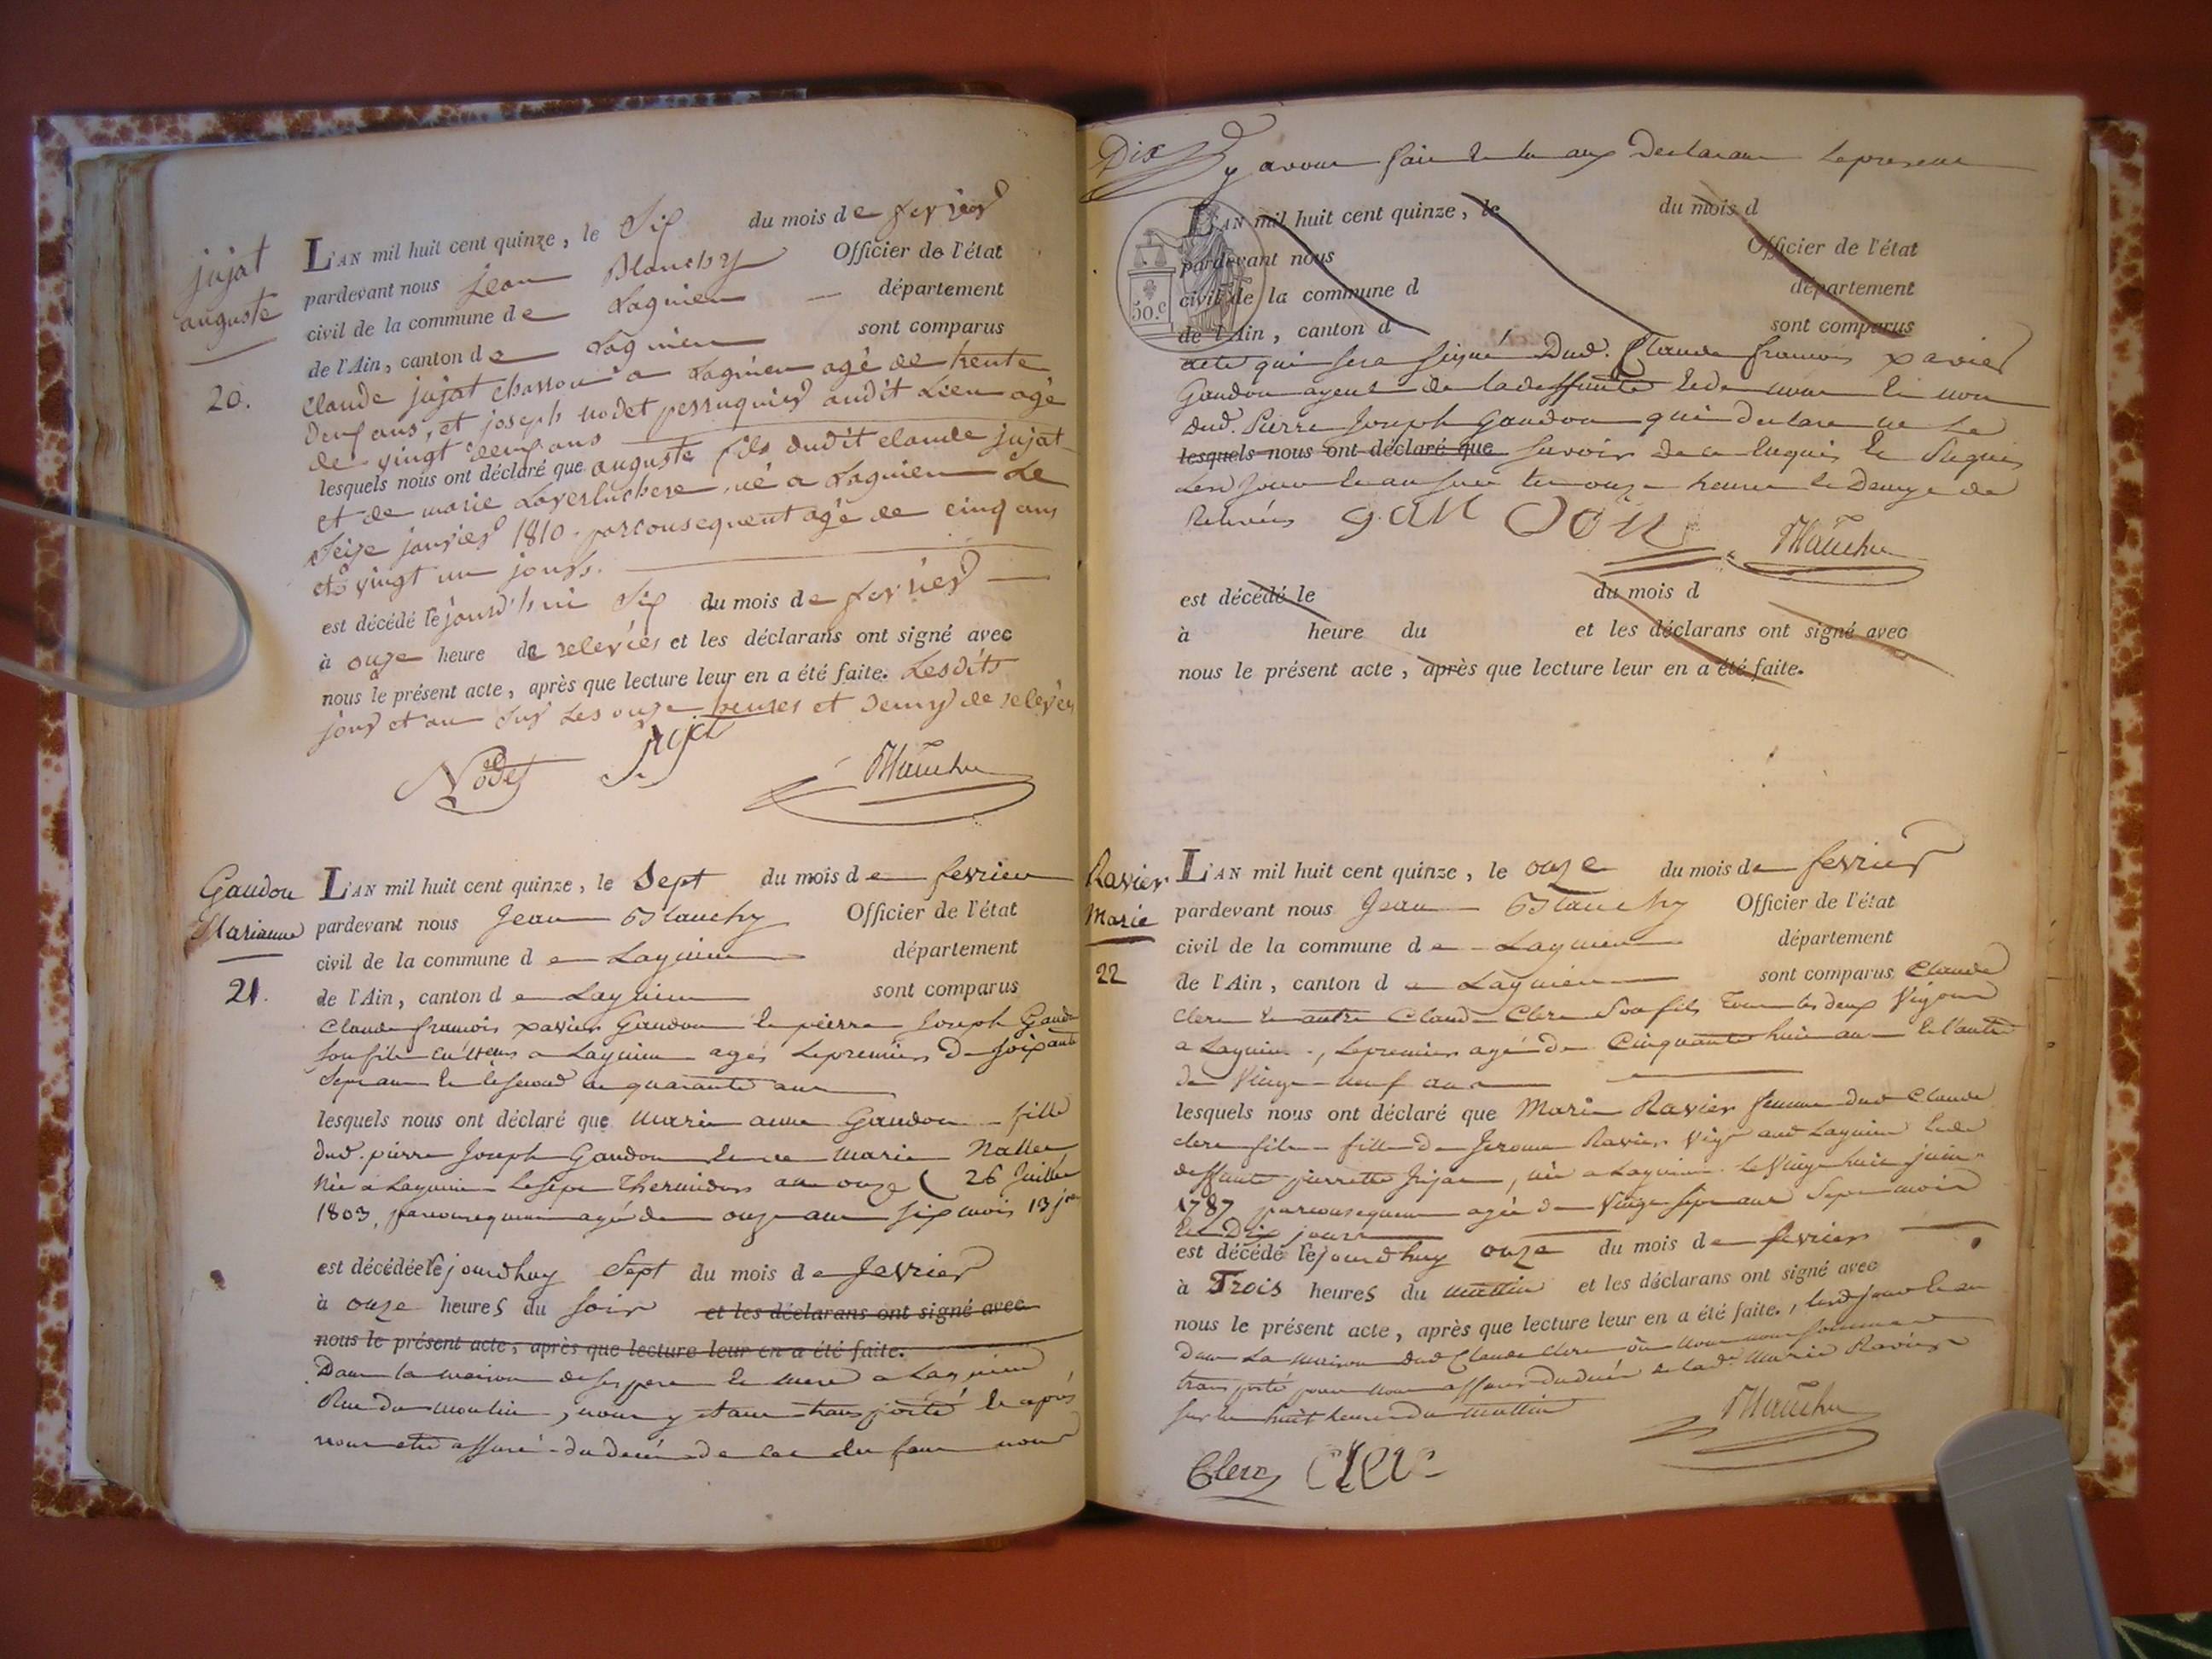 jujat
auguste
20.
L'AN mil huit cent quinze, le Six du mois de fevrier
pardevant nous jean Blanchy Officier de l'état
civil de la commune de Lagnieu département
de l'Ain, canton de Lagnieu sont comparus
claude jujat charron a Lagnieu agé de trente
deux ans, et joseph nodet perruquier audit Lieu agé
de vingt deux ans
lesquels nous ont déclaré que auguste fils dudit claude jujat
et de marie né a Lagnieu Le
Seize janvier 1810. par consequent agé de cinq ans
et vingt un jours.
est décédé lejourd'hui Six du mois de fevrier
à onze heure de relevées et les déclarans ont signé avec
nous le présent acte, après que lecture leur en a été faite. Lesdits
jour et an sur Les onze heures et demy de relevée
Nodet jujat Blanchy
Gaudou
Marianne
21.
L'AN mil huit cent quinze, le Sept du mois de fevrier
pardevant nous Jean Blanchy Officier de l'état
civil de la commune de Lagnieu département
de l'Ain, canton de Lagnieu sont comparus
Claude francois xavier Gaudou et pierre Joseph Gaudou
Son fils a Lagnieu agés Le premier de soixante
Sept ans et le second de quarante ans
lesquels nous ont déclaré que marie anne Gaudou fille
dud. pierre Joseph Gaudou et de marie
Née a Lagnieu Le sept Thermidor an onze ( 26 Juillet
1803, par consequent agée de onze ans six mois 13 jrs
est décédée lejourdhuy Sept du mois de fevrier
à onze heures du soir et les déclarans ont signé avec
nous le présent acte, après que lecture leur en a été faite.
Dans la maison de ses pere et mere a Lagnieu
Rue du moulin, nous y etant transporté et après
nous etre assuré du decés de nous
Dix
y avons fait et lu aux Declarans Le present
L'AN mil huit cent quinze, le du mois d
pardevant nous Officier de l'état
civil de la commune d département
de l'Ain, canton d sont comparus
50.c
acte qui sera signé Dud. Claude francois xavier
Gaudou ayeul de la deffunte et de nous et non
Dud. Pierre Joseph Gaudou qui declare ne le
lesquels nous ont déclaré que savoir de ce enquis et requis
Lesd jour et an sur les onze heures et Demye de
Relevées gaudou Blanchy
est décédé le du mois d
à heure du et les déclarans ont signé avec
nous le présent acte, après que lecture leur en a été faite.
Ravier
Marie
22
L'AN mil huit cent quinze, le onze du mois de fevrier
pardevant nous Jean Blanchy Officier de l'état
civil de la commune de Lagnieu département
de l'Ain, canton de Lagnieu sont comparus Claude
Clerc et autre Claude Clerc Son fils Tous les deux Vigneron
a Lagnieu, Le premier agé de Cinquante huit ans et l'autre
de Vingt neuf ans
lesquels nous ont déclaré que Marie Ravier femme dud Claude
clerc fils fille de Jerome Ravier Vign aud Lagnieu et de
deffunte pierrette Jujat, née a Lagnieu Le Vingt huit juin
1787 par consequent agée de Vingt sept ans Sept mois
et Dix jours
est décédé lejourdhuy onze du mois de fevrier
à Trois heures du mattin et les déclarans ont signé avec
nous le présent acte, après que lecture leur en a été faite., lesd jour et an
Dans La maison dud Claude Clerc où nous nous sommes
transporté pour nous assurer du decés de lade Marie Ravier
sur les huit heures du mattin Blanchy
Clerc Clerc